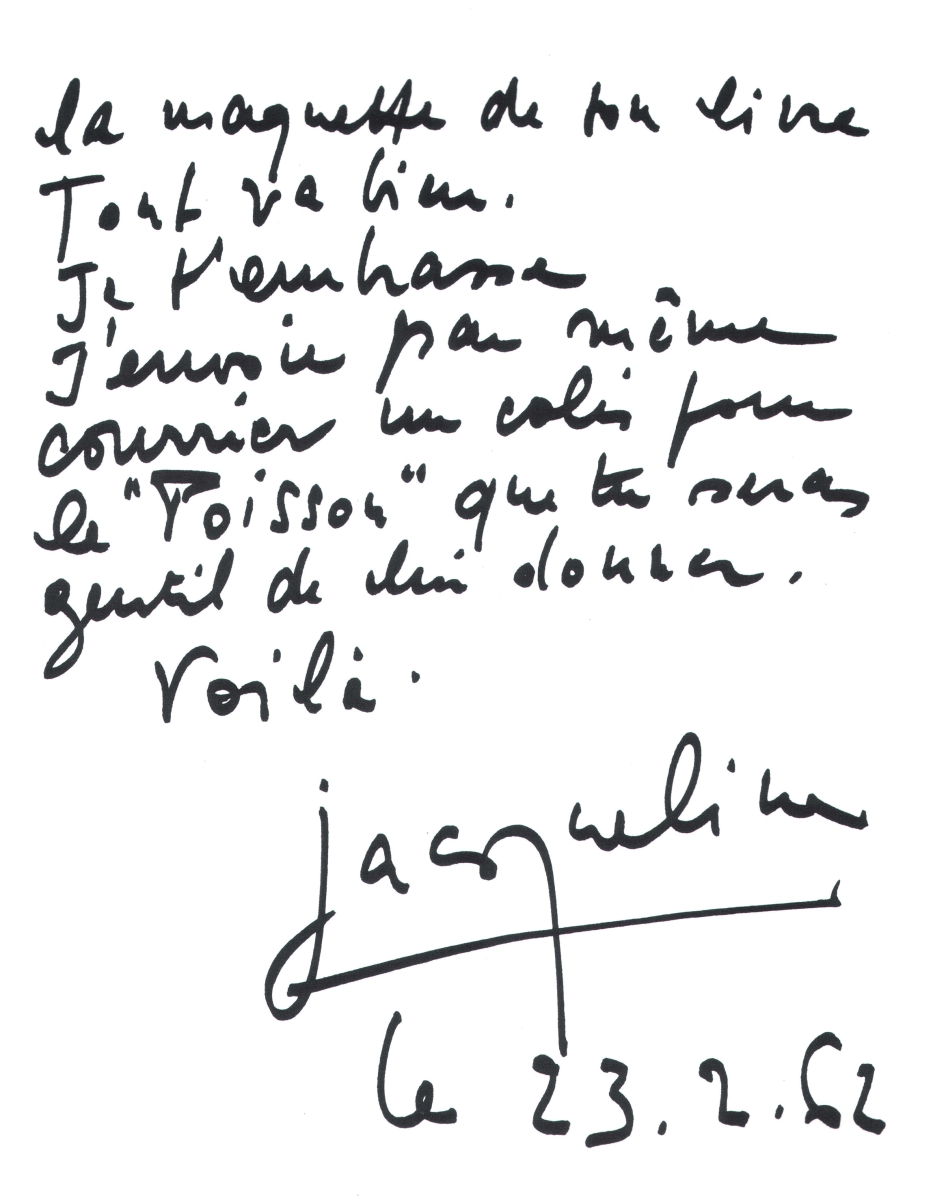 la maquette de ton livre
Tout va bien.
Je t'embrasse
J'envoie par même
courrier un colis pour
le "Poisson" que tu seras
gentil de lui donner.
Voilà.
Jacqueline
le 23.2.62